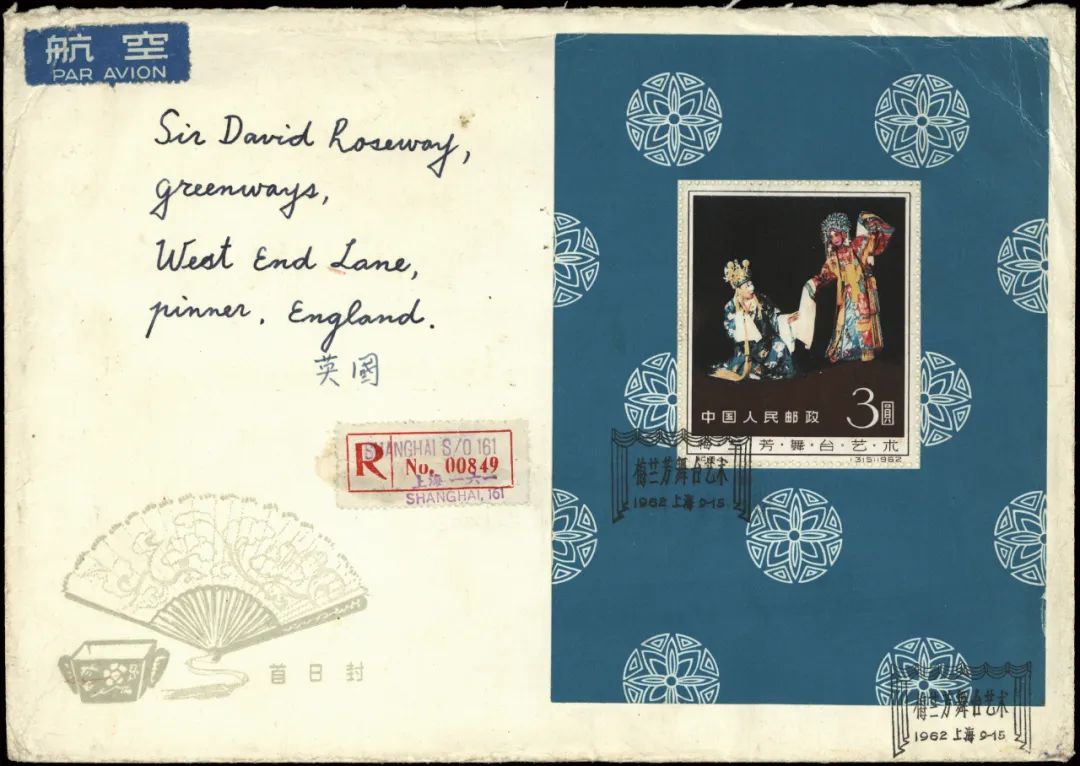 航空
PAR AVION
Sir David Roseway,
greenways,
West End Lane,
pinner, England.
英國
SHANGHAI S/O 161
R No. 00849
上海 一六一
SHANGHAI, 161
首日封
中国人民邮政
3圆
梅兰芳·舞·台·艺·术
(315)1962
梅兰芳舞台艺术
1962 上海 9-15
梅兰芳舞台艺术
1962 上海 9-15